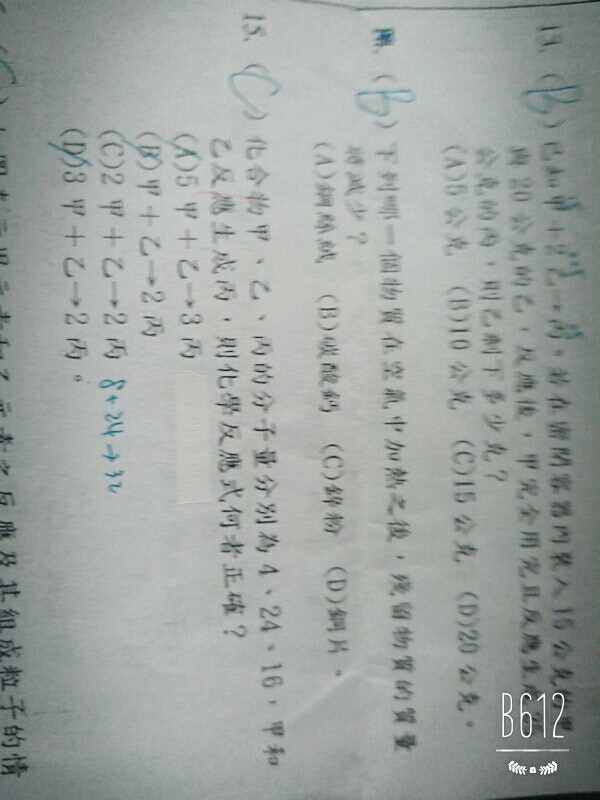 13. (B) 已知甲+2乙→丙。若在密閉容器內裝入15公克的甲
30公克的乙,反應後,甲完全用完且反應生
公克的丙,則乙剩下多少克?
(A)5公克 (B)10公克 (C)15公克 (D)20公克。
(B) 下列哪一個物質在空氣中加熱之後,殘留物質的質量
減少?
(A)鋼絲絨 (B)碳酸鈣 (C)鋅粉 (D)銅片。
15. (C) 化合物甲、乙、丙的分子量分別為4、24、16,甲和
乙反應生成丙,則化學反應式何者正確?
(A)5甲+乙→3丙
(B)甲+乙→2丙
(C)2甲+乙→2丙 8+24→32
(D)3甲+乙→2丙。
(C)
反應及其組成粒子的情
B612